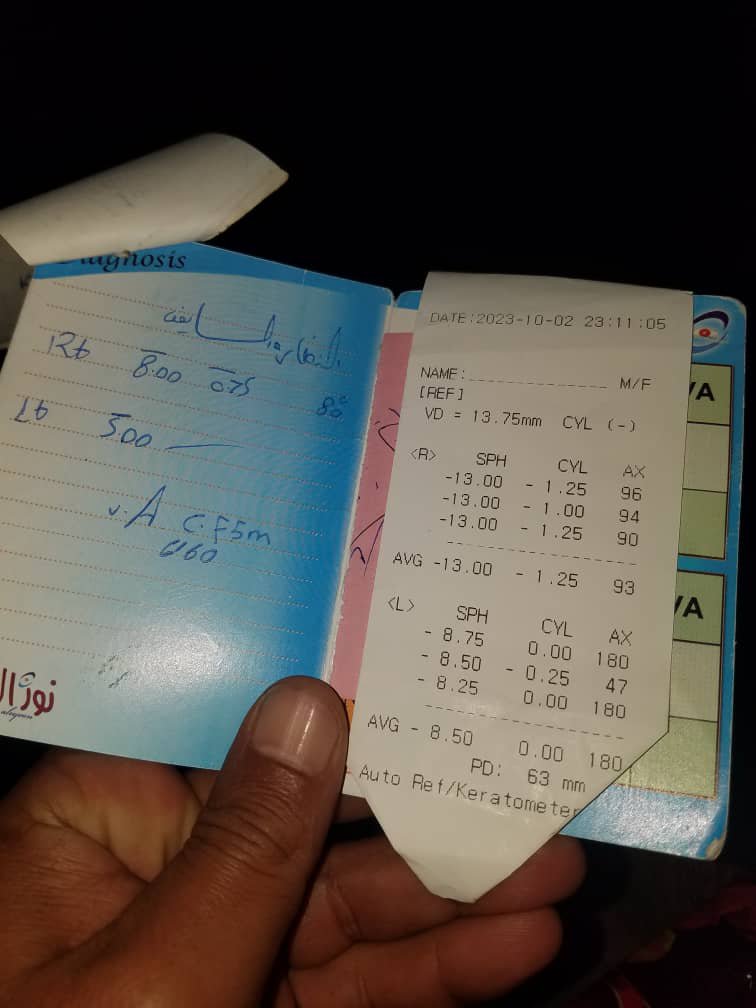 Diagnosis
النظارة السابقة
Rt 8.00 0.75 80°
Lt 5.00
V.A C.F5m
6/60
نور ال
DATE:2023-10-02 23:11:05
NAME: M/F
[REF]
VD = 13.75mm CYL (-)
<R> SPH CYL AX
-13.00 - 1.25 96
-13.00 - 1.00 94
-13.00 - 1.25 90
AVG -13.00 - 1.25 93
<L> SPH CYL AX
- 8.75 0.00 180
- 8.50 - 0.25 47
- 8.25 0.00 180
AVG - 8.50 0.00 180
PD: 63 mm
Auto Ref/Keratometer
VA
VA